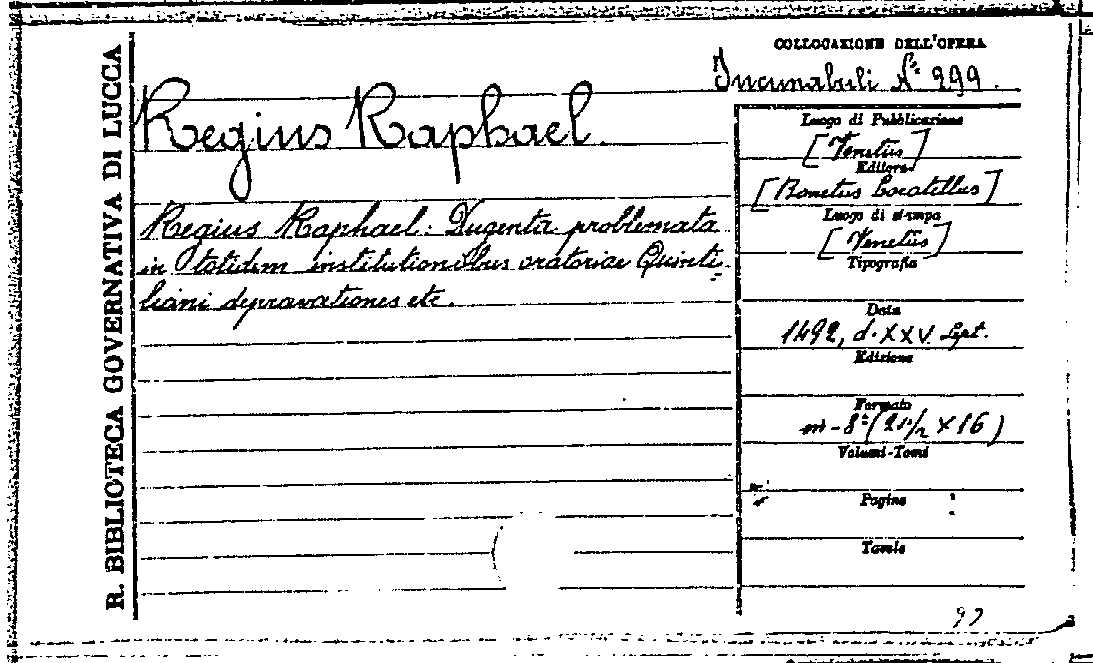 R. BIBLIOTECA GOVERNATIVA DI LUCCA
COLLOCAZIONE DELL'OPERA
Incunabuli N.° 299.
Regius Raphael.
Regius Raphael: Dugenta problemata
in totidem institutionibus oratoriae Quinti=
liani depravationes etc.
Luogo di Pubblicazione
[Venetus]
Editore
[Bonetus Locatellus]
Luogo di stampa
[Venetus]
Tipografia
Data
1492, d. XXV. Sept.
Edizione
Formato
in-8° (21 1/2 X 16)
Volumi-Tomi
Pagine
Tavole
97